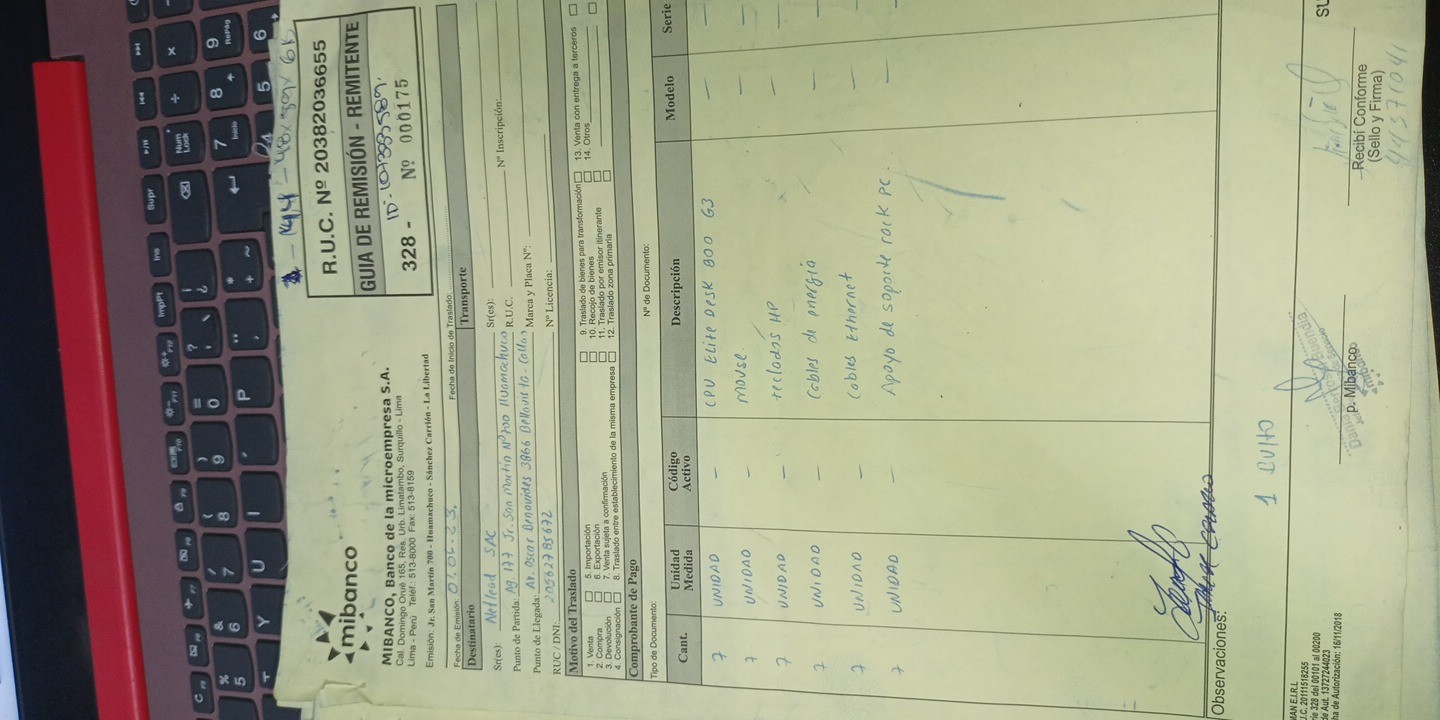 mibanco
MIBANCO, Banco de la microempresa S.A.
Cal. Domingo Orué 165, Res. Urb. Limatambo, Surquillo - Lima
Lima - Perú Teléf.: 513-8000 Fax: 513-8159
Emisión: Jr. San Martín 700 - Huamachuco - Sánchez Carrión - La Libertad
R.U.C. Nº 20382036655
GUIA DE REMISIÓN - REMITENTE
328 - Nº 000175
Fecha de Emisión:
Fecha de Inicio de Traslado:
Destinatario
Transporte
Sr(es): Netlead SAC
Sr(es):
Punto de Partida: Ag. 177 Jr. San Martin Nº700 Huamachuco
R.U.C.
Nº Inscripción:
Punto de Llegada: Av. Oscar Benavides 3866 Bellavista - Callao
Marca y Placa Nº:
RUC / DNI: 20562785672
Nº Licencia:
Motivo del Traslado
1. Venta
2. Compra
3. Devolución
4. Consignación
5. Importación
6. Exportación
7. Venta sujeta a confirmación
8. Traslado entre establecimiento de la misma empresa
9. Traslado de bienes para transformación
10. Recojo de bienes
11. Traslado por emisor itinerante
12. Traslado zona primaria
13. Venta con entrega a terceros
14. Otros
Comprobante de Pago
Tipo de Documento:
Nº de Documento:
Cant. Unidad Medida Código Activo Descripción Modelo Serie
7 UNIDAD - CPU Elite Desk 800 G3 - -
7 UNIDAD - mouse - -
7 UNIDAD - teclados HP - -
7 UNIDAD - Cables de energia - -
7 UNIDAD - Cables Ethernet - -
7 UNIDAD - Apoyo de soporte rack PC. - -
Observaciones:
1 Bulto
p. Mibanco
Recibí Conforme
(Sello y Firma)
44371041
MAN E.I.R.L
U.C. 20111518255
rie 328 del 00101 al 00200
de Aut. 13727244023
ha de Autorización: 16/11/2018